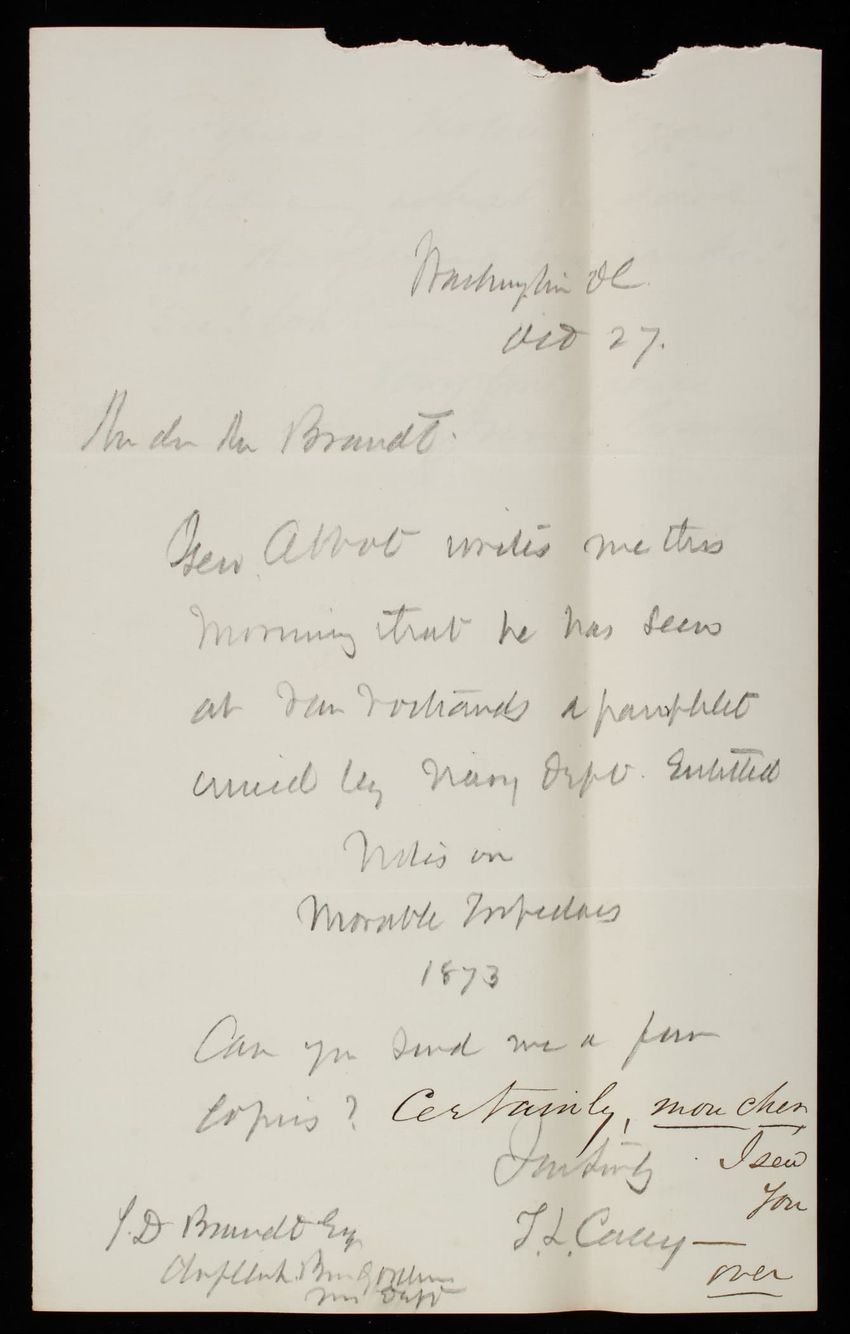 Washington DC.
Oct 27.
My dr Mr Brandt.
Genl. Abbot writes me this
morning that he has seen
at Van Nostrands a pamphlet
issued by Navy Dept. Entitled
Notes on
Movable Torpedoes
1873
Can you send me a few
copies? Certainly, mon cher
Yrs truly I sen
You
J.D. Brandt Esq T. L. Casey —
over
Chf Clerk. Bu. Ordn
Dept